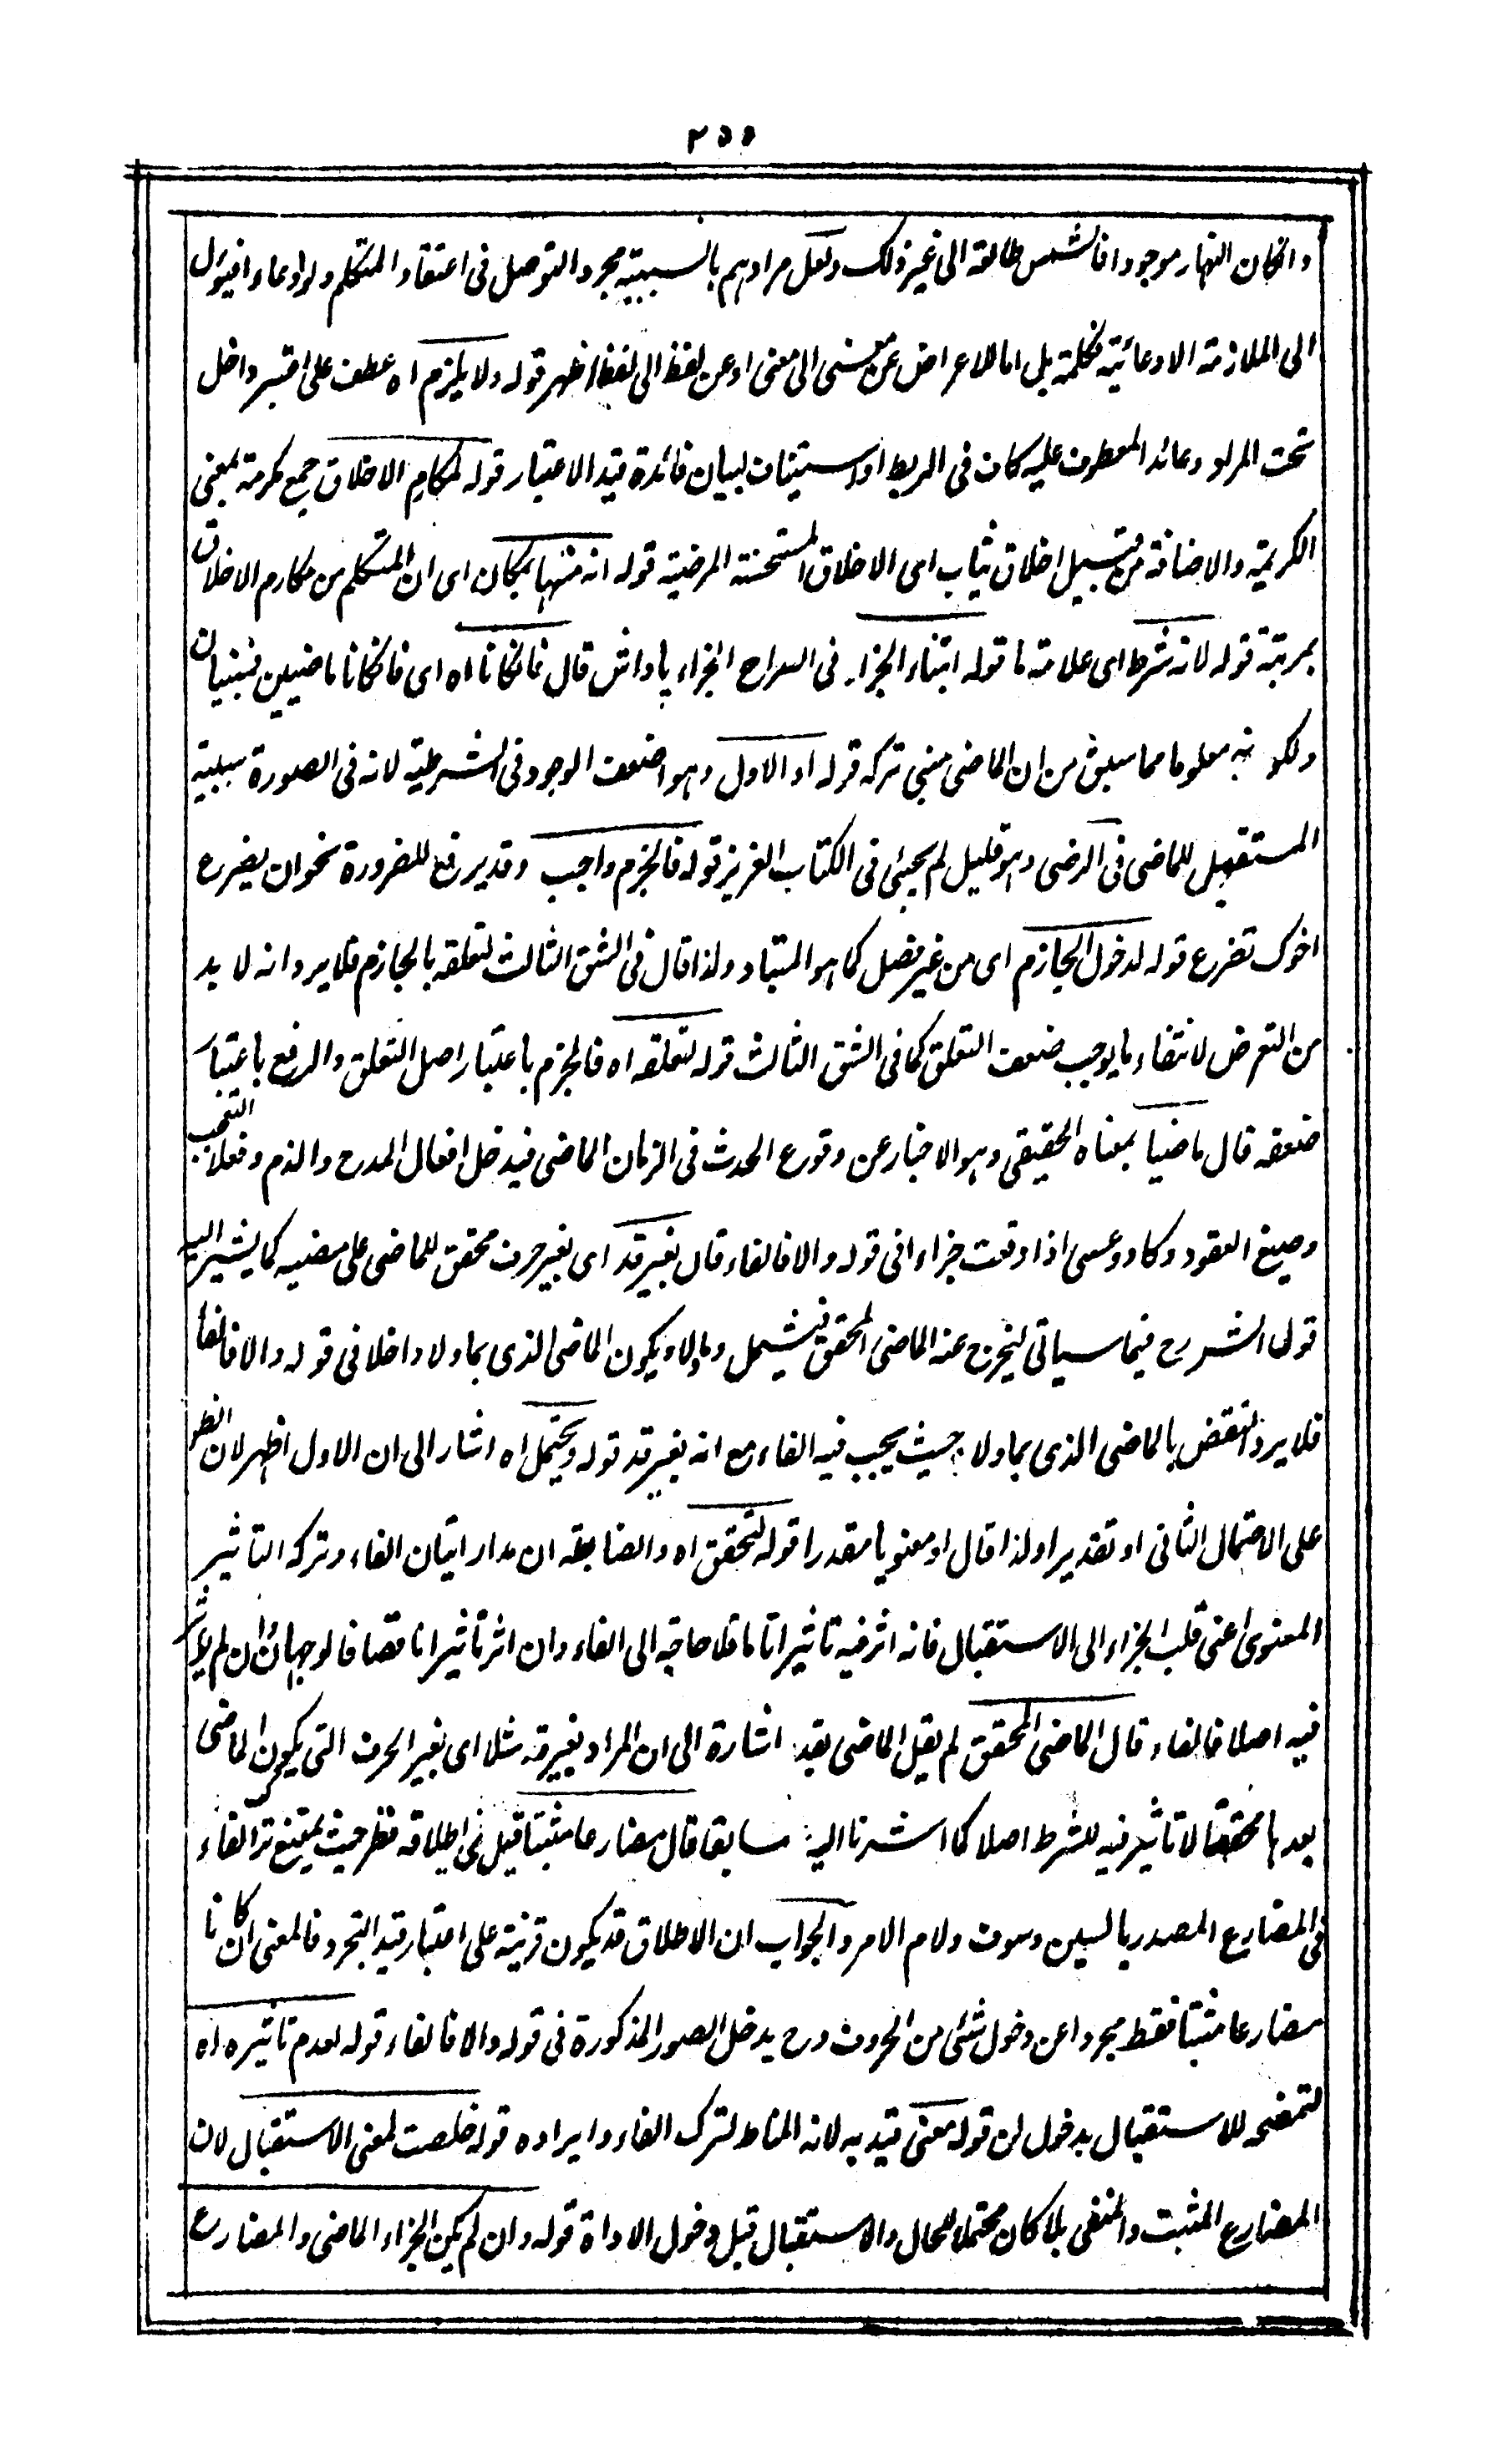 ٢٥٥
وان كان النهار موجودا فالشمس طالعة الى غير ذلك ولعل مرادهم بالسببية مجرد التوصل فى اعتقاد المتكلم ولو ادعاء فيئول
الى الملازمة الادعائية فكلمة بل اما للاعراض عن معنى الى معنى او عن لفظ الى لفظ اظهر قوله ولا يلزم اه عطف على اعتبر داخل
تحت المراد وعائد المعطوف عليه كاف فى الربط او استيناف لبيان فائدة قيد الاعتبار قوله لمكارم الاخلاق جمع مكرمة بمعنى
الكريمة والاضافة من قبيل اخلاق ثياب اى الاخلاق المستحسنة المرضية قوله انه منها بمكان اى ان المتكلم من مكارم الاخلاق
بمرتبة قوله لانه شرط اى علامة ما قوله ابتناء الجزاء فى الصراح الجزاء پاداش قال فان كانا اه اى فان كانا ماضيين فمبنيان
ولكونه معلوما مما سبق من ان الماضى مبنى تركه قوله او الاول وهو اضعف الوجود فى الشرطية لانه فى الصورة سببية
المستقبل للماضى فى الرضى وهو قليل لم يجئ فى الكتاب العزيز قوله فالجزم واجب وقد يرفع للضرورة نحو ان يضرع
اخوك تضرع قوله لدخول الجازم اى من غير فصل كما هو المتبادر ولذا قال فى الشق الثالث لتعلقه بالجازم فلا يرد انه لا بد
من التعرض لانتفاء ما يوجب ضعف التعلق كما فى الشق الثالث قوله لتعلقه اه فالجزم باعتبار اصل التعلق والرفع باعتبار
ضعفه قال ماضيا بمعناه الحقيقى وهو الاخبار عن وقوع الحدث فى الزمان الماضى فيدخل افعال المدح والذم وفعلا التعجب
وصيغ العقود وكاد وعسى اذا وقعت جزاء فى قوله والا فالفاء قال بغير قد اى بغير حرف محقق للماضى على مضيه كما يشير اليه
قول الشرح فيما سياتى ليخرج عنه الماضى المحقق فيشمل وما ولا ويكون الماضى الذى بما ولا داخلا فى قوله والا فالفاء
فلا يرد النقض بالماضى الذى بما ولا حيث يجب فيه الفاء مع انه بغير قد قوله ويحتمل اه اشار الى ان الاول اظهر لان الظهر
على الاحتمال الثانى او تقديرا ولذا قال او معنويا مقدرا قوله لتحقق اه والضابطة ان مدار اتيان الفاء وتركه التاثير
المعنوى اعنى قلب الجزاء الى الاستقبال فانه اثر فيه تاثيرا تاما فلا حاجة الى الفاء وان اثر تاثيرا ناقصا فالوجهان ان لم يؤثر
فيه اصلا فالفاء قال الماضى المحقق لم يقل الماضى بقد اشارة الى ان المراد بغير قد مثلا اى بغير الحرف التى يكون الماضى
بعدها محققا لا تاثير فيه للشرط اصلا كما اشرنا اليه سابقا قال مضارعا مثبتا قيل فى اطلاقه نظر حيث يمتنع ترك الفاء
فى المضارع المصدر بالسين وسوف ولام الامر والجواب ان الاطلاق قد يكون قرينة على اعتبار قيد التجرد فالمعنى ان كانا
مضارعا مثبتا فقط مجردا عن دخول شئ من الحروف وح يدخل الصور المذكورة فى قوله والا فالفاء قوله لعدم تاثيره اه
لتمضحه للاستقبال بدخول لن قوله معنى قيد به لانه المناط لترك الفاء وايراده قوله خلصت لمعنى الاستقبال لان
المضارع المثبت والمنفى بلا كان محتملا للحال والاستقبال قبل دخول الاداة قوله وان لم يكن الجزاء الماضى والمضارع